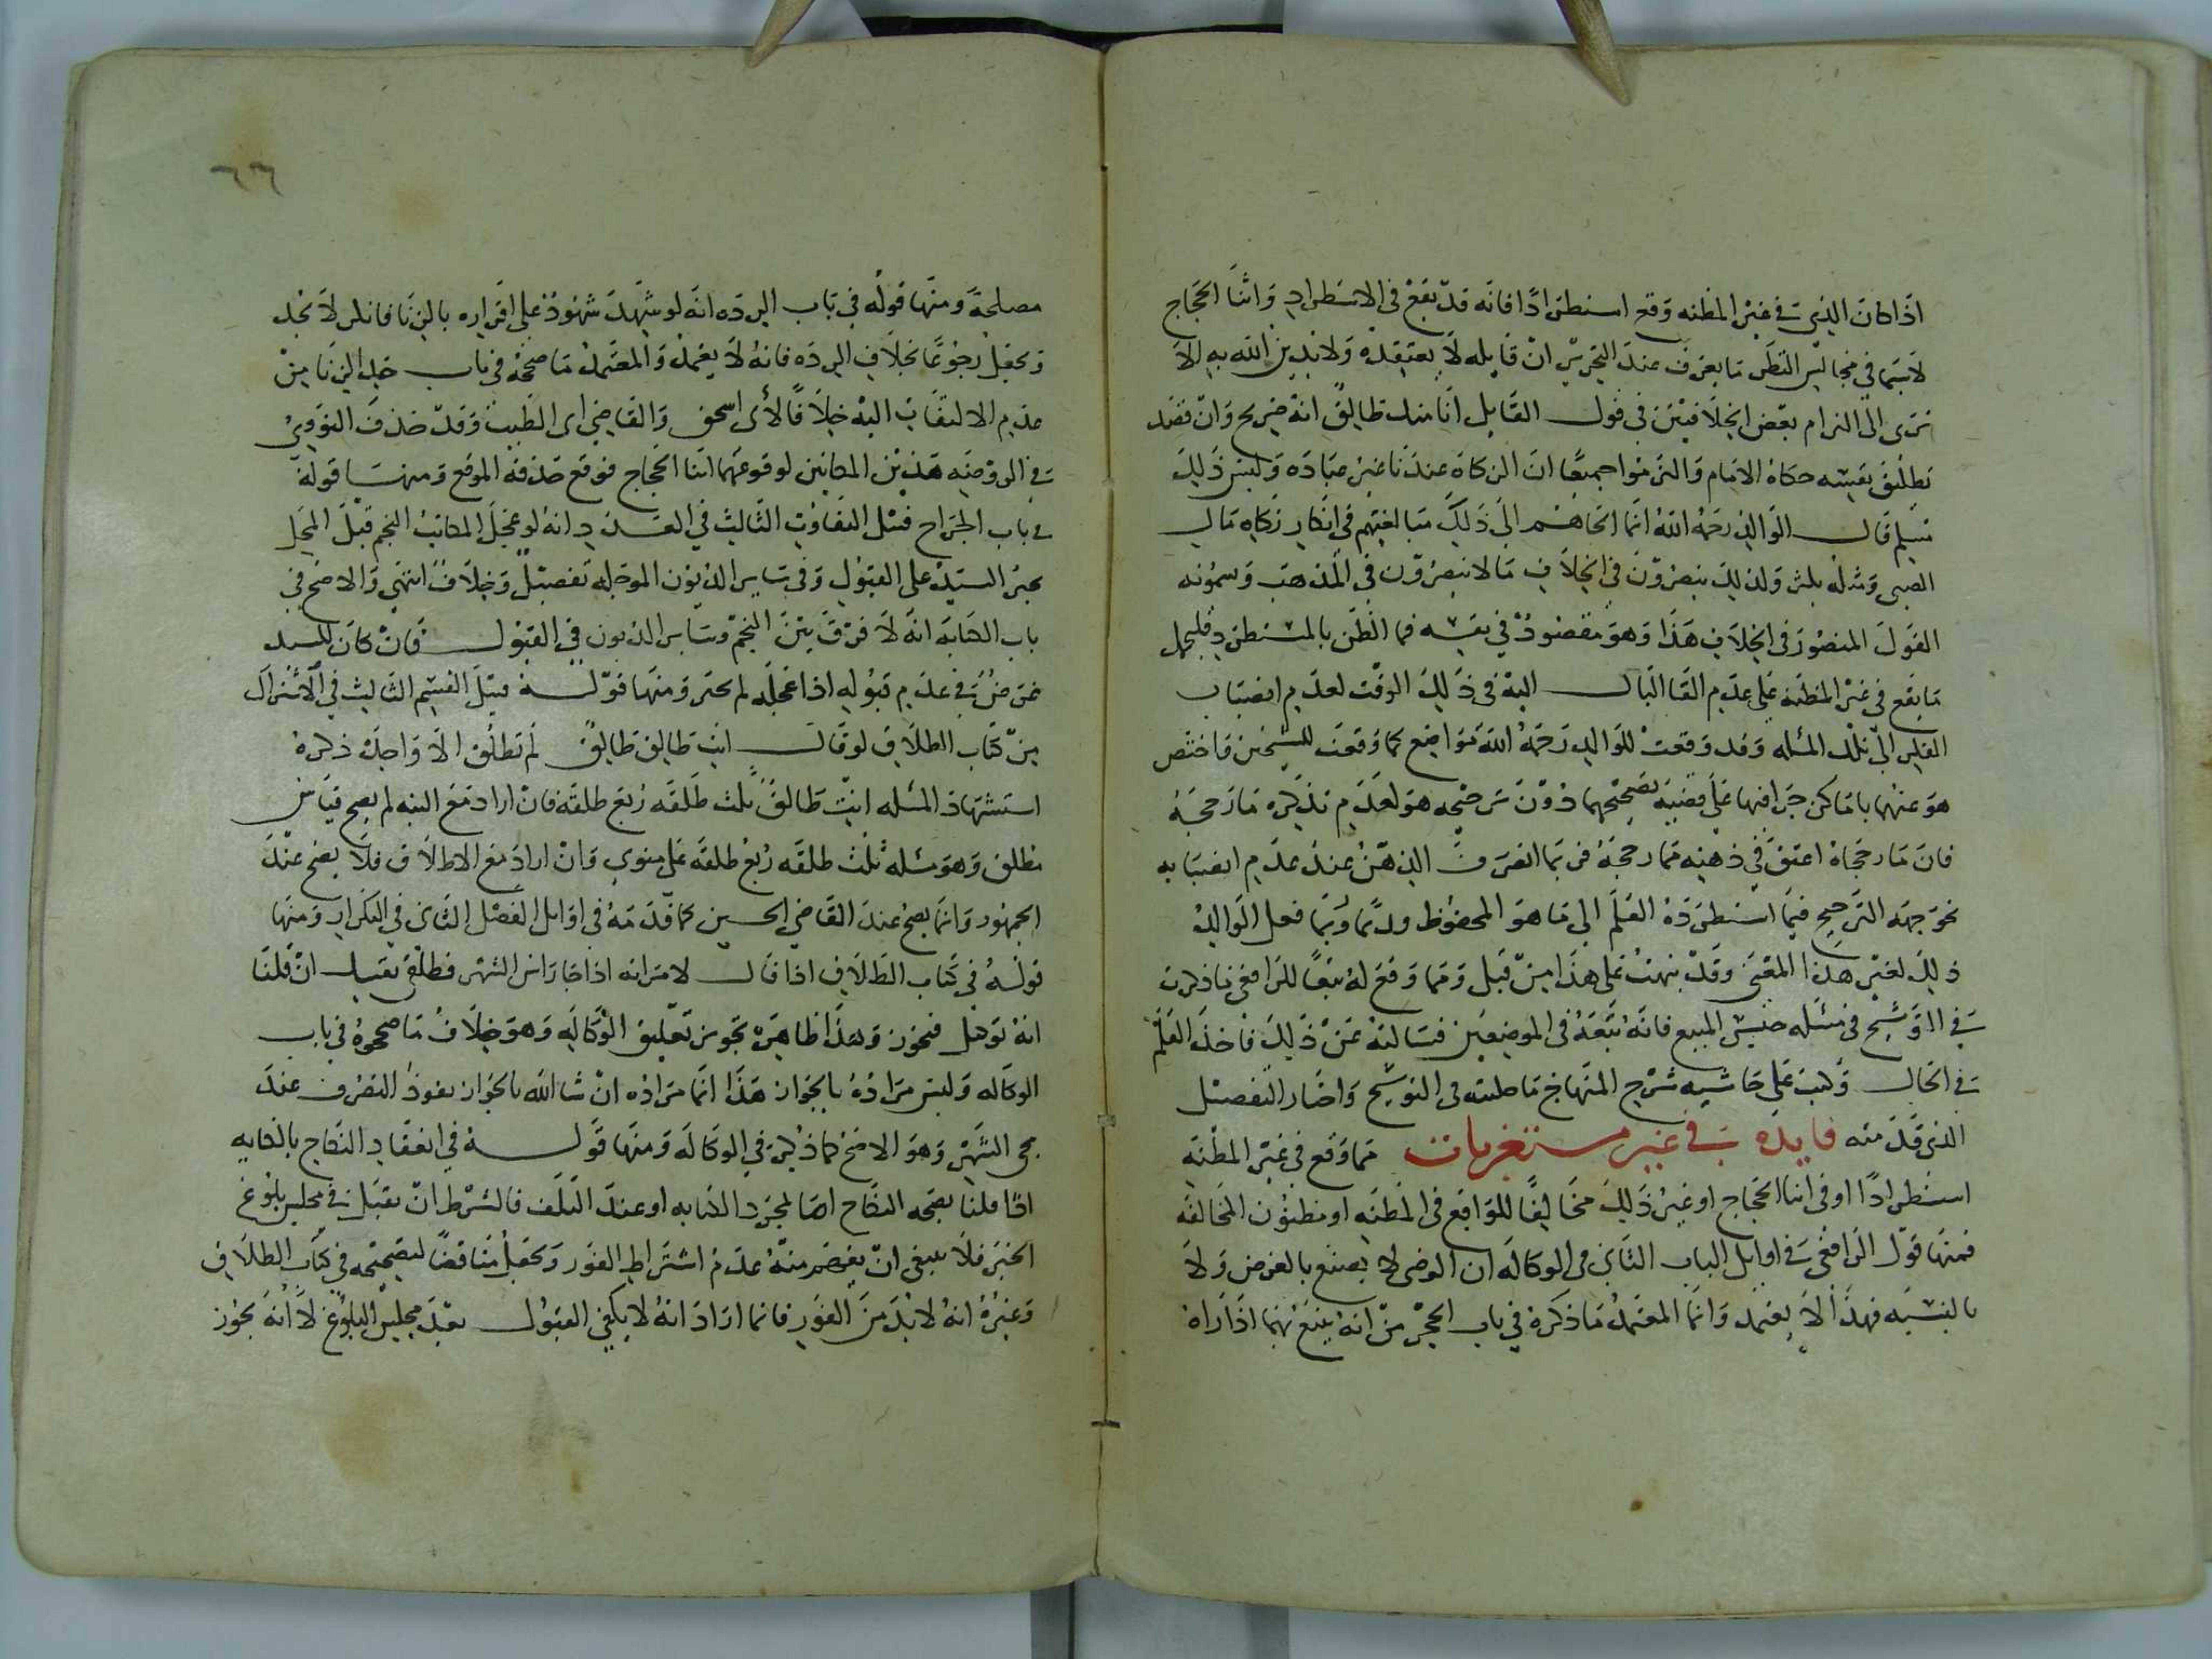 اذا كان الذي في غير المظنه وقع استطرادا فانه قد يقع في الاستطراد واثنا الحجاج
لاسيما في مجالس النظر ما يعرف عند التحرير ان قايله لا يعتقده ولا يدين الله به الا
ترى الى التزام بعض الخلافيين في قول القايل انا منك طالق انه صريح وان قصد
تطليق نفسه حكاه الامام والتزموا جميعا ان الزكاة عندنا غير عباده وليس ذلك
قال الوالد رحمه الله انما الجاهم الى ذلك مبالغتهم في انكار زكاه مال
الصبي ومثله ولذلك ينصرون في الخلاف ما لا ينصرون في المذهب ويسمونه
القول المنصور في الخلاف هذا وهو مقصود في نفسه فما الظن بالمستطرد فليحمل
ما يقع في غير المظنه على عدم القا البال اليه في ذلك الوقت لعدم انصباب
الفكر الى تلك المسله وقد وقعت للوالد رحمه الله مواضع كما وقعت للشيخين فاختص
هو عنهما باماكن جرا فيها على قضيه تصحيحهما دون ترجيحه هو لعدم تذكره ما رجحه
فان ما رجحاه اعتق في ذهنه مما رجحه فربما انصرف الذهن عند عدم انصبابه
نحو جهه الترجيح فيما استطرده القلم الى ما هو المحفوظ وربما فعل الوالد
ذلك لغير هذا المعنى وقد نبهت على هذا من قبل ومما وقع له تبعا للرافعي ما ذكرت
في التوشيح في مسئله حبس المبيع فانه تبعه في الموضعين فسالته عن ذلك فاخذ القلم
في الحال وكتب على حاشيه شرح المنهاج ما حليته في التوشيح واختار التفصيل
الذي قدمته فايده في غير مستغربات مما وقع في غير المظنه
استطرادا او في اثنا الحجاج او غير ذلك مخالفا للواقع في المظنه او مظنون المخالفه
فمنها قول الرافعي في اوايل الباب الثاني في الوكاله ان الوصي لا يمتنع بالعرض ولا
بالنسيه فهذا لا يعتمد وانما المعتمد ما ذكره في باب الحجر من انه يبيع بهما اذا راه
٦٦
مصلحة ومنها قوله في باب الرده انه لو شهد شهود على اقراره بالزنا فانكر لا يحد
ويجعل رجوعا بخلاف الرده فانه لا يعتمد والمعتمد ما صححه في باب حد الزنا من
عدم الالتفات اليه خلافا لأبي اسحق والقاضي ابي الطيب وقد حذف النووي
في الروضه هذين المكانين لوقوعهما اثنا الحجاج فوقع حذفه الموقع ومنها قوله
في باب الجراح قبل التفاوت الثالث في العدد انه لو عجل المكاتب النجم قبل المحل
يجبر السيد على القبول وفي ساير الديون الموجله تفصيل وخلاف انتهى والاصح في
باب الكتابه انه لا فرق بين النجم وساير الديون في القبول فان كان للسيد
غرض في عدم قبوله اذا عجله لم يجبر ومنها قوله قبل القسم الثالث في الانزال
من كتاب الطلاق لو قال انت طالق طالق لم تطلق الا واحدة ذكره
استشهادا لمسئله انت طالق ثلث طلقه ربع طلقه فان اراد مع النيه لم يصح قياس
مطلق وهو مسئله ثلث طلقه ربع طلقه على منوي وان اراد مع الاطلاق فلا يصح عند
الجمهور وانما يصح عند القاضي الحسين كما قدمه في اوايل الفصل الثاني في التكرار ومنها
قوله في كتاب الطلاق اذا قال لامراته اذا جا راس الشهر فطلقي نفسك ان قلنا
انه توكيل فيجوز وهذا ظاهره تجويز تعليق الوكاله وهو خلاف ما صححوه في باب
الوكاله وليس مراده بالجواز هذا انما مراده ان شا الله بالجواز نفوذ التصرف عند
مجي الشهر وهو الاصح كما ذكره في الوكاله ومنها قوله في انعقاد النكاح بالكتابه
اذا قلنا بصحه النكاح اما لمجرد الكتابه او عند التلف فالشرط ان يقبل في مجلس بلوغ
الخبر فلا ينبغي ان يفهم منه عدم اشتراط الفور ويجعل مناقضا لتصحيحه في كتاب الطلاق
وغيره انه لا بد من الفور فانما اراد انه لا يكفي القبول بعد مجلس البلوغ لا انه يجوز